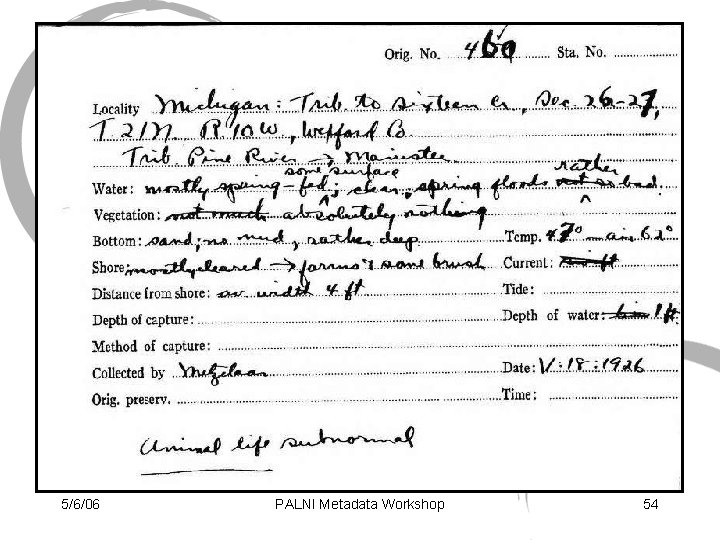 Orig. No. 460 Sta. No.
Locality Michigan: Trib. to Sixteen Cr, Sec. 26-27,
T 21N. R 10W, Wexford Co
Trib Pine River → Manistee
some surface rather
Water: mostly spring-fed; clear; spring floods not so bad.
Vegetation: not much absolutely nothing
Bottom: sand; no mud, rather deep Temp. 47° - air 62°
Shore: mostly cleared → farms & some brush Current:
Distance from shore: av width 4 ft Tide:
Depth of capture: Depth of water: 1 ft.
Method of capture:
Collected by Metzelaar Date: V:18:1926
Orig. preserv. Time:
Animal life subnormal
5/6/06 PALNI Metadata Workshop 54